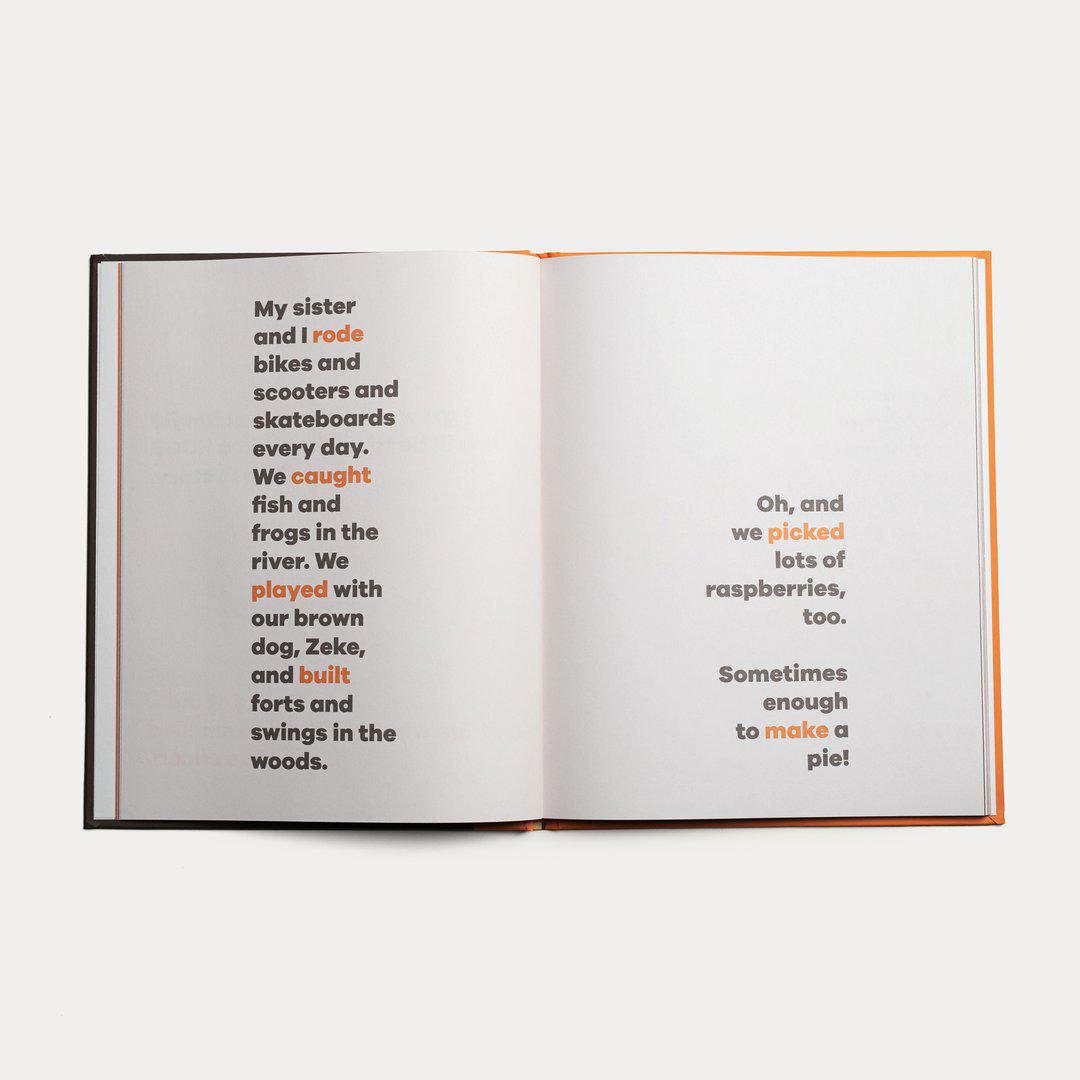 My sister
and I rode
bikes and
scooters and
skateboards
every day.
We caught
fish and
frogs in the
river. We
played with
our brown
dog, Zeke,
and built
forts and
swings in the
woods.
Oh, and
we picked
lots of
raspberries,
too.
Sometimes
enough
to make a
pie!